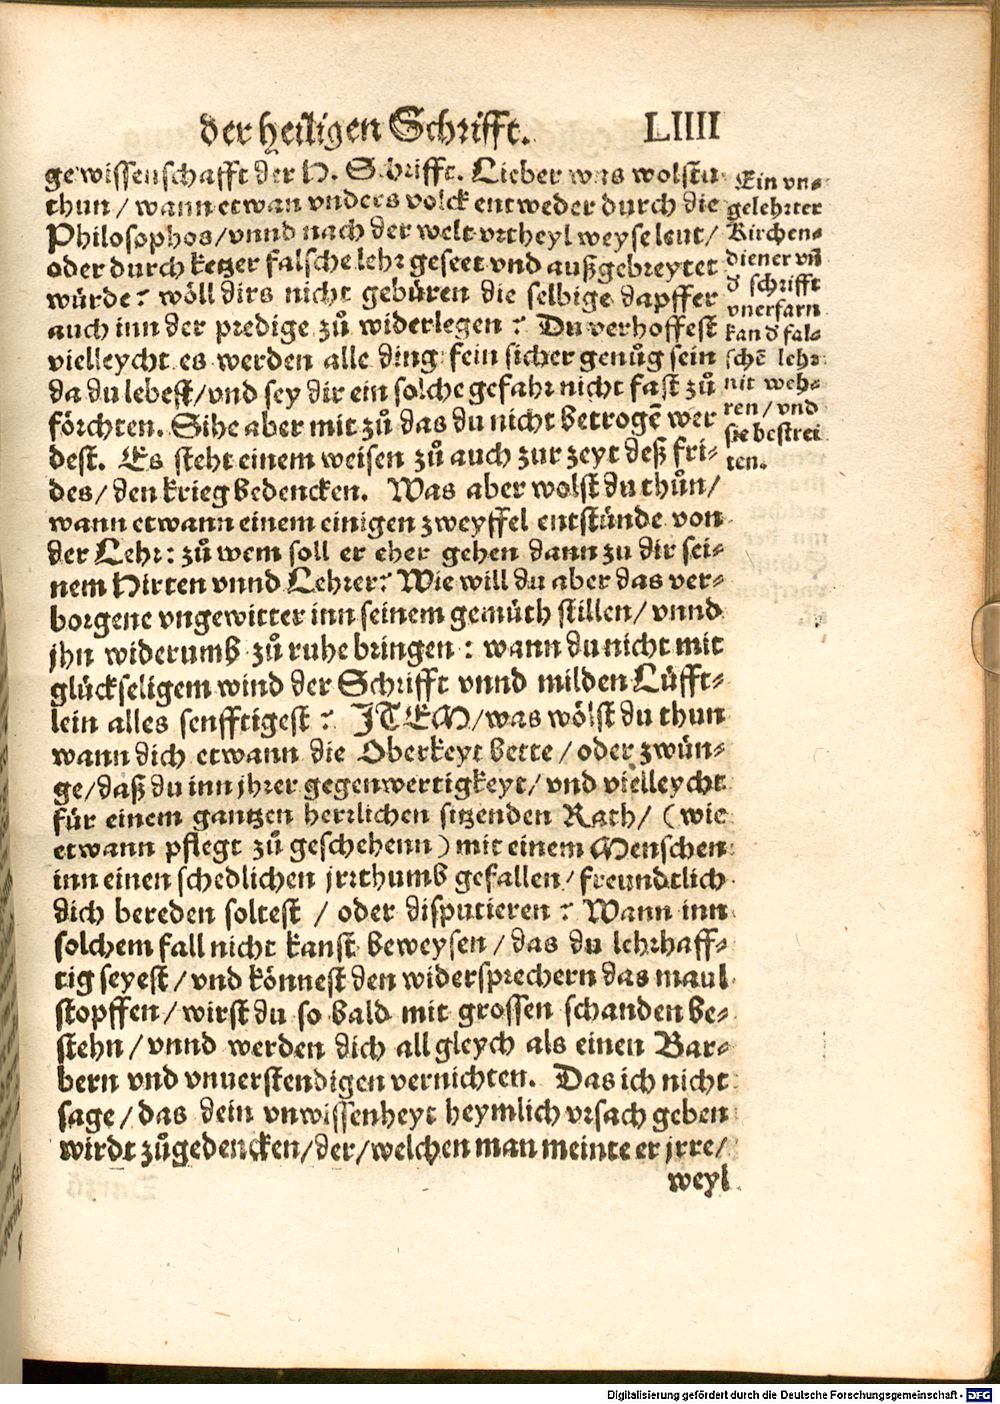 der heiligen Schrifft. LIIII
gewissenschafft der H. Schrifft. Lieber was wolstu
thun / wann etwan vnders volck entweder durch die
Philosophos/vnnd nach der welt vrtheyl weyse leut/
oder durch ketzer falsche lehr geseet vnd außgebreytet
würde? wöll dirs nicht gebüren die selbige dapffer
auch inn der predige zů widerlegen? Du verhoffest
vielleycht es werden alle ding fein sicher genůg sein
da du lebest/vnd sey dir ein solche gefahr nicht fast zů
förchten. Sihe aber mit zů das du nicht betrogē wer
dest. Es steht einem weisen zů auch zur zeyt deß fri-
des/den krieg bedencken. Was aber wolst du thůn/
wann etwann einem einigen zweyffel entstünde von
der Lehr: zů wem soll er eher gehen dann zu dir sei-
nem Hirten vnnd Lehrer? Wie will du aber das ver-
borgene vngewitter inn seinem gemüth stillen/vnnd
jhn widerumb zů ruhe bringen: wann du nicht mit
glückseligem wind der Schrifft vnnd milden Lüfft-
lein alles senfftigest? ITEM/was wölst du thun
wann dich etwann die Oberkeyt bette/oder zwün-
ge/daß du inn jhrer gegenwertigkeyt/vnd vielleycht
für einem gantzen herrlichen sitzenden Rath/ (wie
etwann pflegt zů geschehenn) mit einem Menschen
inn einen schedlichen jrrthumb gefallen/freundtlich
dich bereden soltest / oder disputieren? Wann inn
solchem fall nicht kanst beweysen/das du lehrhaff-
tig seyest/vnd könnest den widersprechern das maul
stopffen/wirst du so bald mit grossen schanden be-
stehn/vnnd werden dich all gleych als einen Bar-
bern vnd vnuerstendigen vernichten. Das ich nicht
sage/das dein vnwissenheyt heymlich vrsach geben
wirdt zůgedencken/der/welchen man meinte er jrre/
weyl
Ein vn-
gelehrter
Kirchen-
diener vñ
d' schrifft
vnerfarn
kan d' fal-
schē lehr
nit weh-
ren/vnd
sie bestrei
ten.
Digitalisierung gefördert durch die Deutsche Forschungsgemeinschaft - DFG